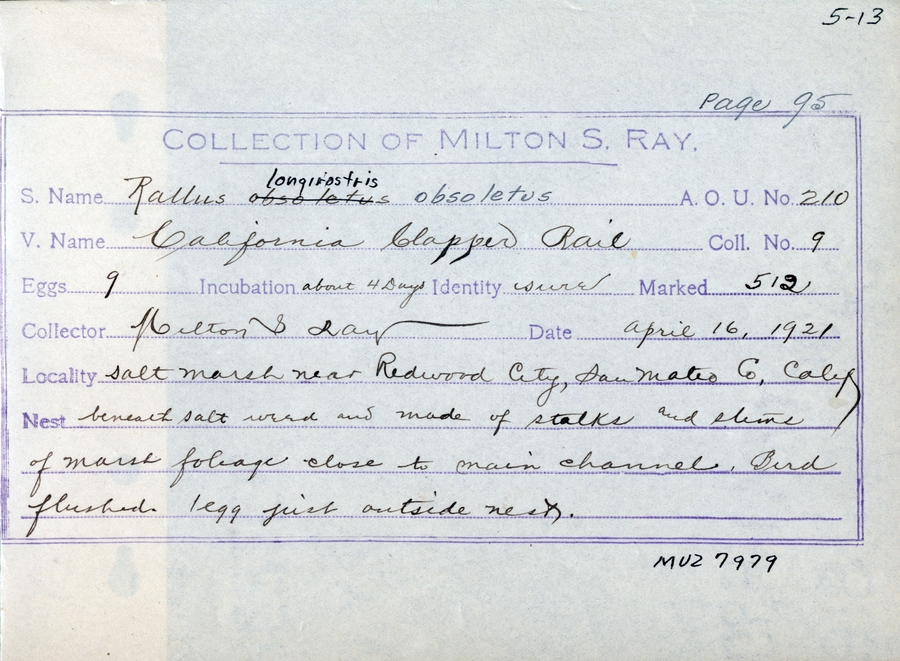 5-13
Page 95
COLLECTION OF MILTON S. RAY.
longirostris
S. Name Rallus obsoletus obsoletus A. O. U. No. 210
V. Name California Clapper Rail Coll. No. 9
Eggs 9 Incubation about 4 Days Identity sure Marked 512
Collector Milton S Ray Date April 16, 1921
Locality salt marsh near Redwood City, San Mateo Co, Calif
Nest beneath salt weed and made of stalks and stems
of marsh foliage close to main channel. Bird
flushed. 1 egg just outside nest.
MVZ 7979